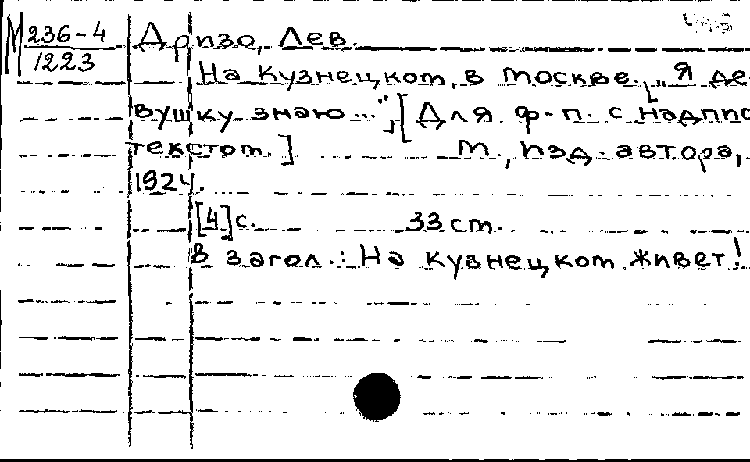 М 236-4
1223
Дризо, Лев.
На Кузнецком, в Москве. „Я де
вушку знаю...", [Для ф-п. с надпис
текстом.] М., изд. автора,
1924.
[4] с. 33 см.
В загол.: На Кузнецком живет!